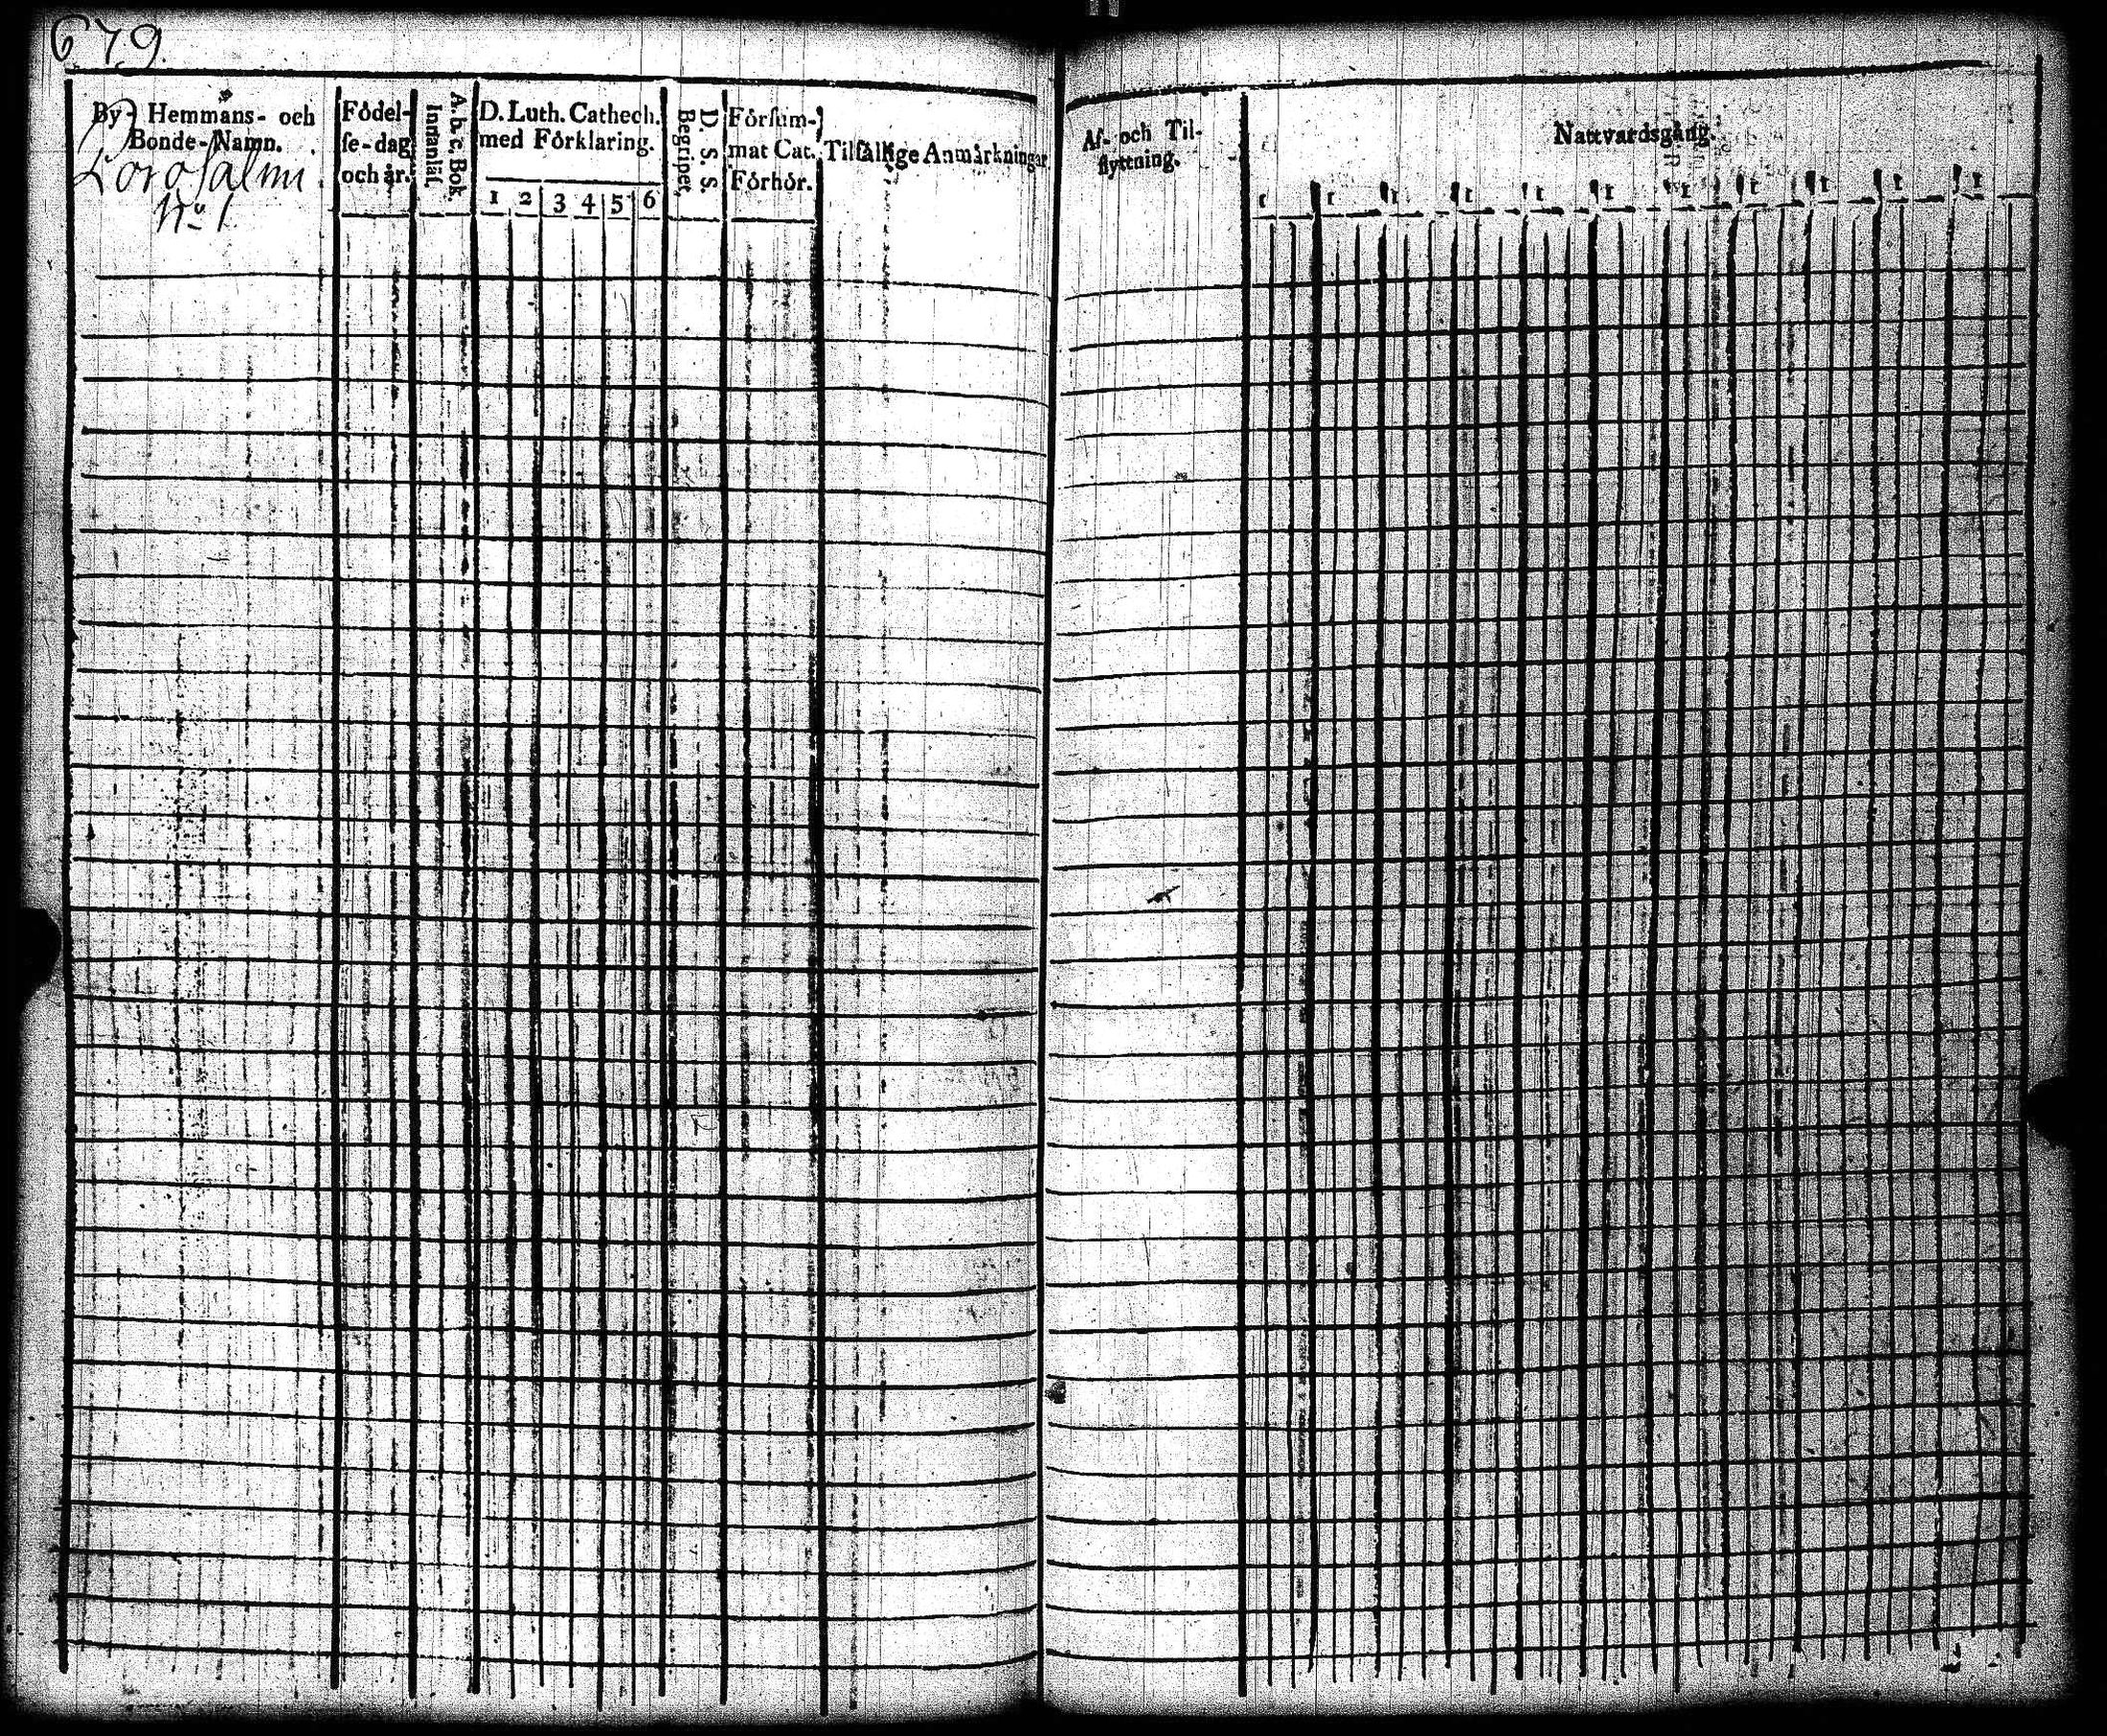 679.
By- Hemmans- och
Bonde-Namn.
Porosalmi
No 1.
Födel-
se-dag
och år.
A. b. c. Bok.
Innanläs.
D. Luth. Cathech.
med Förklaring.
1 2 3 4 5 6
D. S. S.
Begripet.
Försum-
mat Cat.
Förhör.
Tilfällige Anmärkningar
Af- och Til-
flyttning.
Nattvardsgång.
1 1 1 1 1 1 1 1 1 1 1